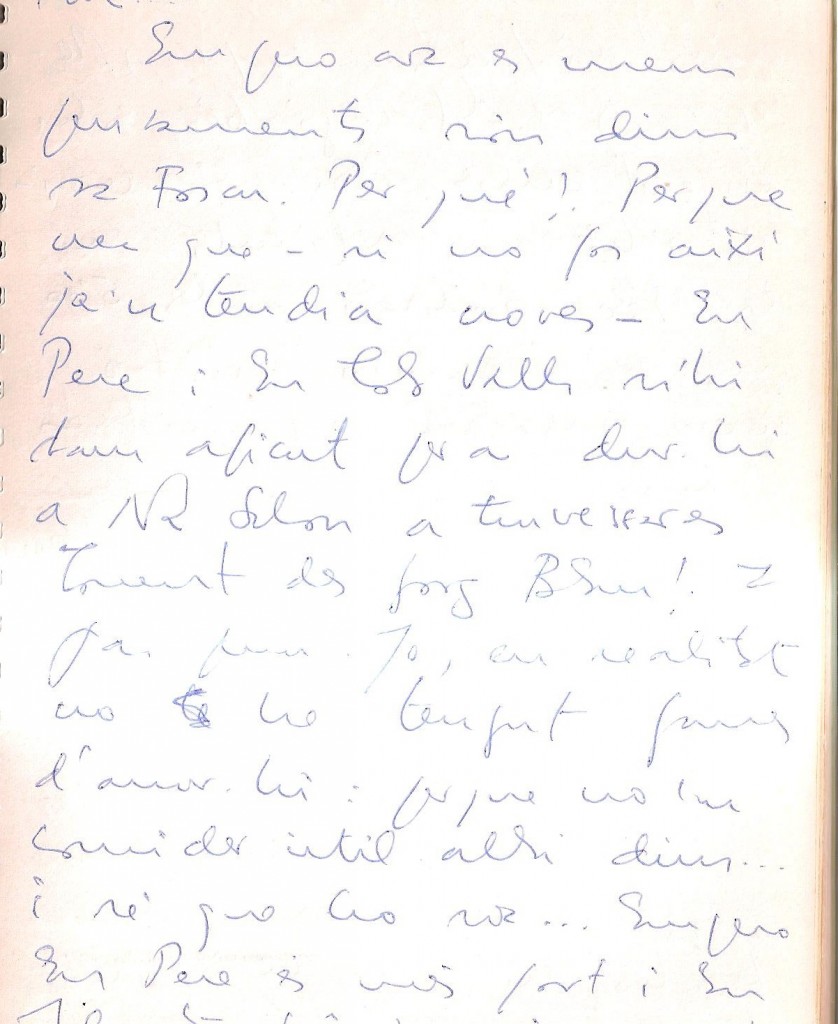 Emperò ara es meus
pensaments són dins
sa Fosca. Per què! Perque
veu que - si no fos així
ja'n tendria noves - En
Pere i En Valls s'hi
han aficat per a dur-hi
a Na a
Torrent des Gorg Blau! I
fan ... Jo, en realitat
no he tengut ganes
d'anar-hi: perque no'm
consider útil allà dins...
i sé que ho sóc... Emperò
En Pere és més fort i En